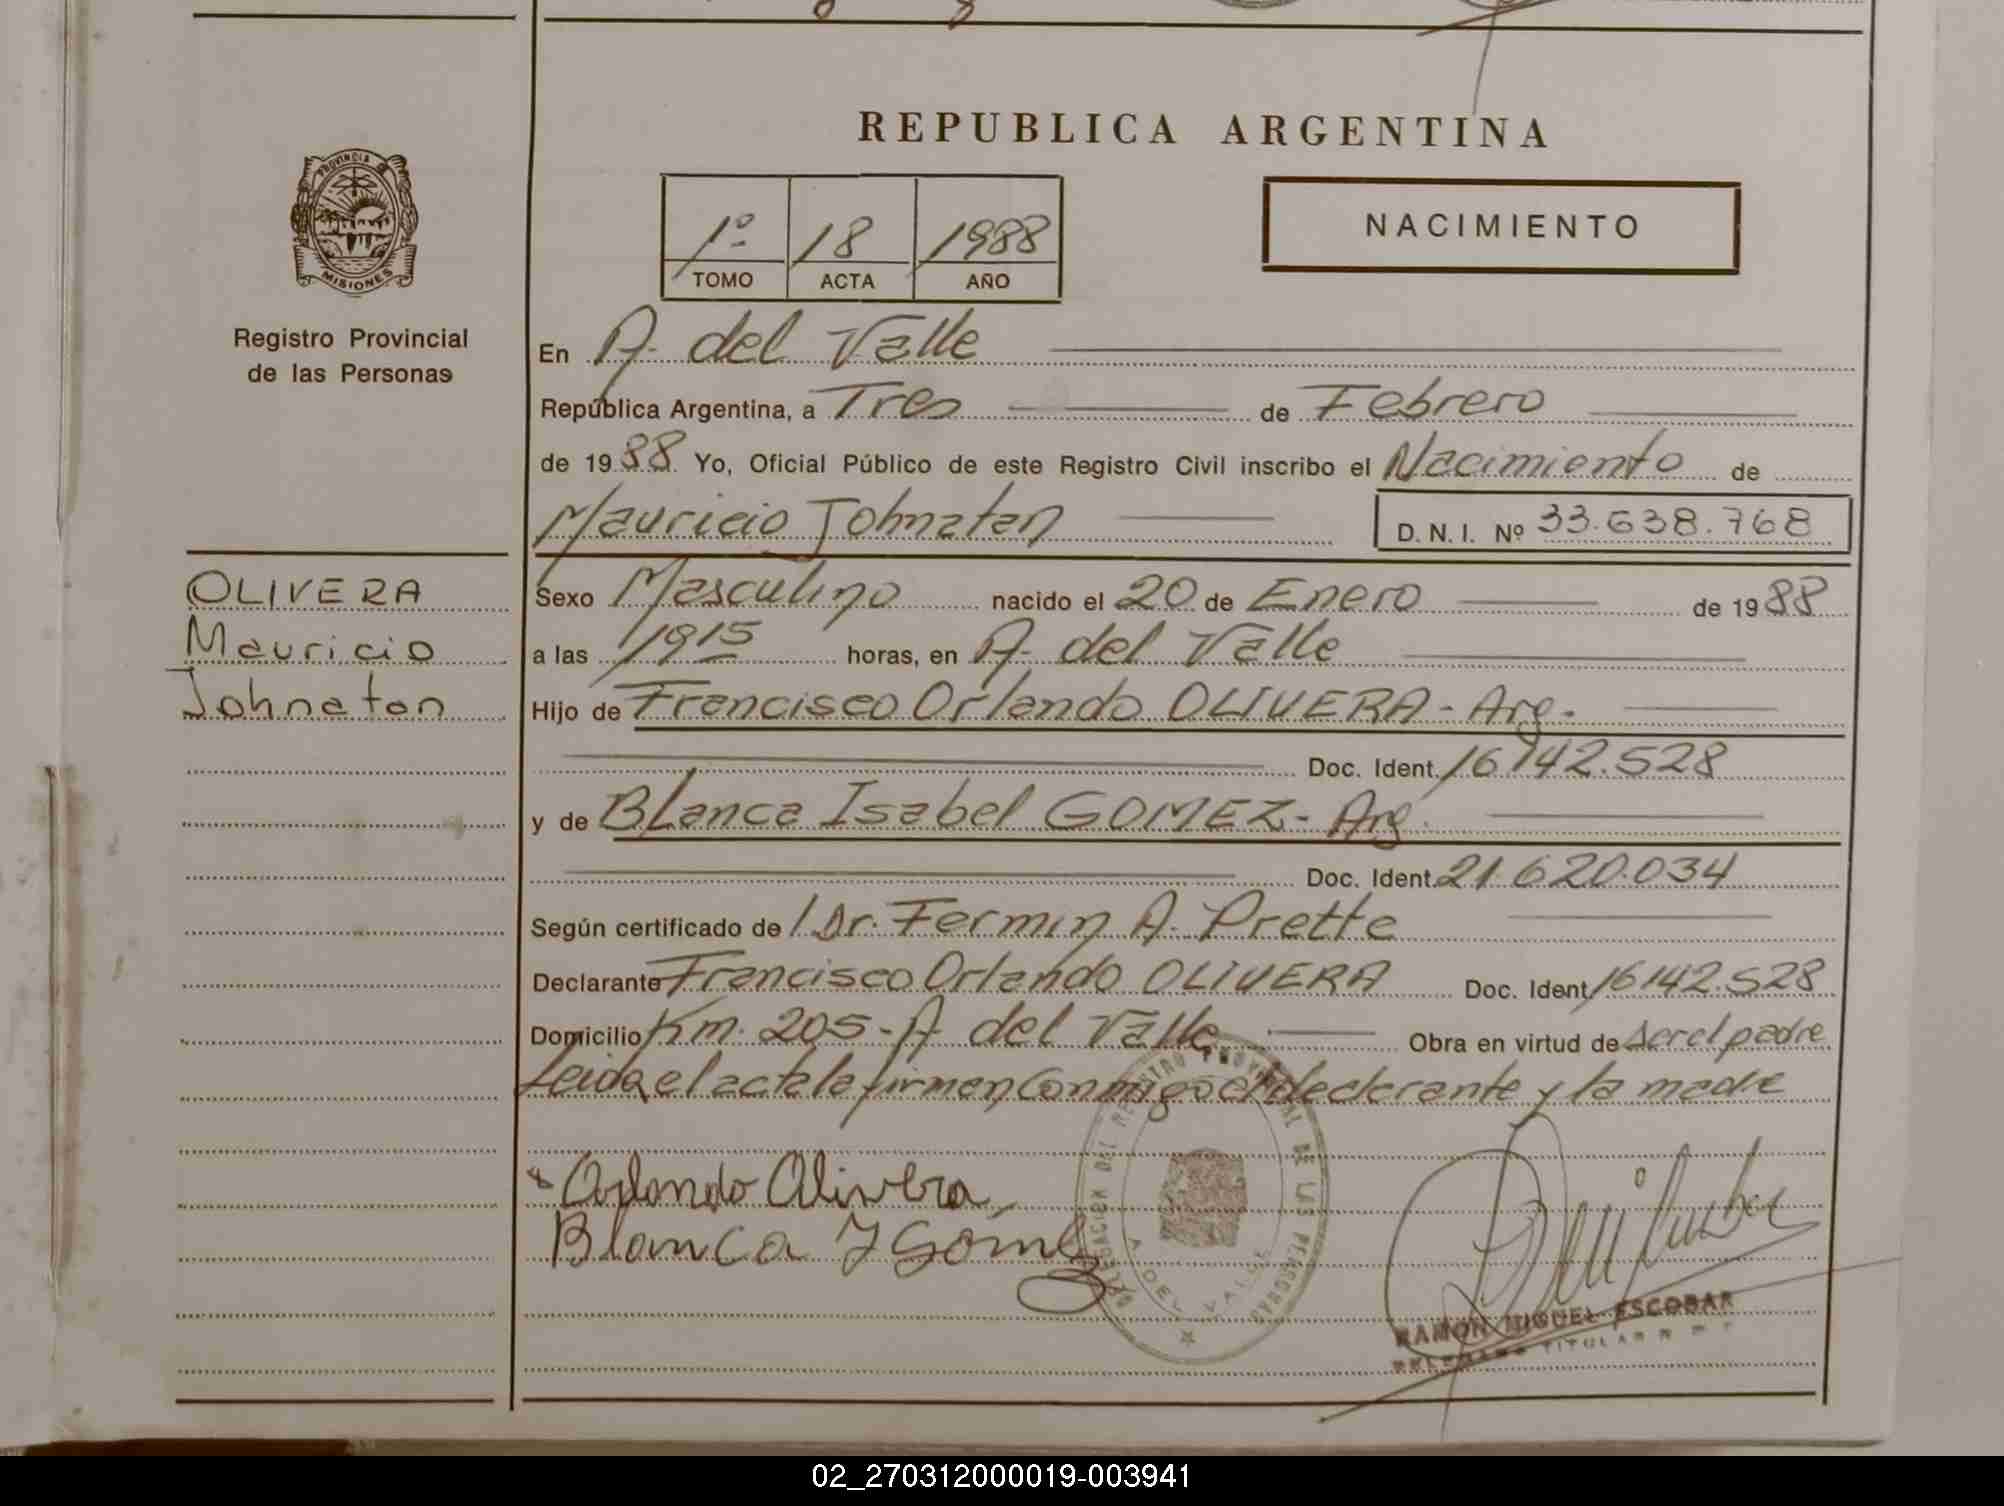 REPUBLICA ARGENTINA
PROVINCIA DE
MISIONES
Registro Provincial
de las Personas
1º 18 1988
TOMO ACTA AÑO
NACIMIENTO
En A. del Valle
República Argentina, a Tres de Febrero
de 1988 Yo, Oficial Público de este Registro Civil inscribo el Nacimiento de
Mauricio Johnatan D.N.I. Nº 33.638.768
OLIVERA
Mauricio
Johnatan
Sexo Masculino nacido el 20 de Enero de 1988
a las 1915 horas, en A. del Valle
Hijo de Francisco Orlando OLIVERA - Arg.
Doc. Ident. 16142.528
y de BLanca Isabel GOMEZ - Arg.
Doc. Ident. 21.620.034
Según certificado de Dr. Fermin A. Prette
Declarante Francisco Orlando OLIVERA Doc. Ident. 16142.528
Domicilio Km. 205 - A del Valle Obra en virtud de ser el padre
Leida el acta la firman conmigo el declarante y la madre
Orlando Olivera
Blanca I Gómez
DELEGACION DEL REGISTRO PROVINCIAL DE LAS PERSONAS
A DEL VALLE
RAMON MIGUEL ESCOBAR
TITULAR
02_270312000019-003941